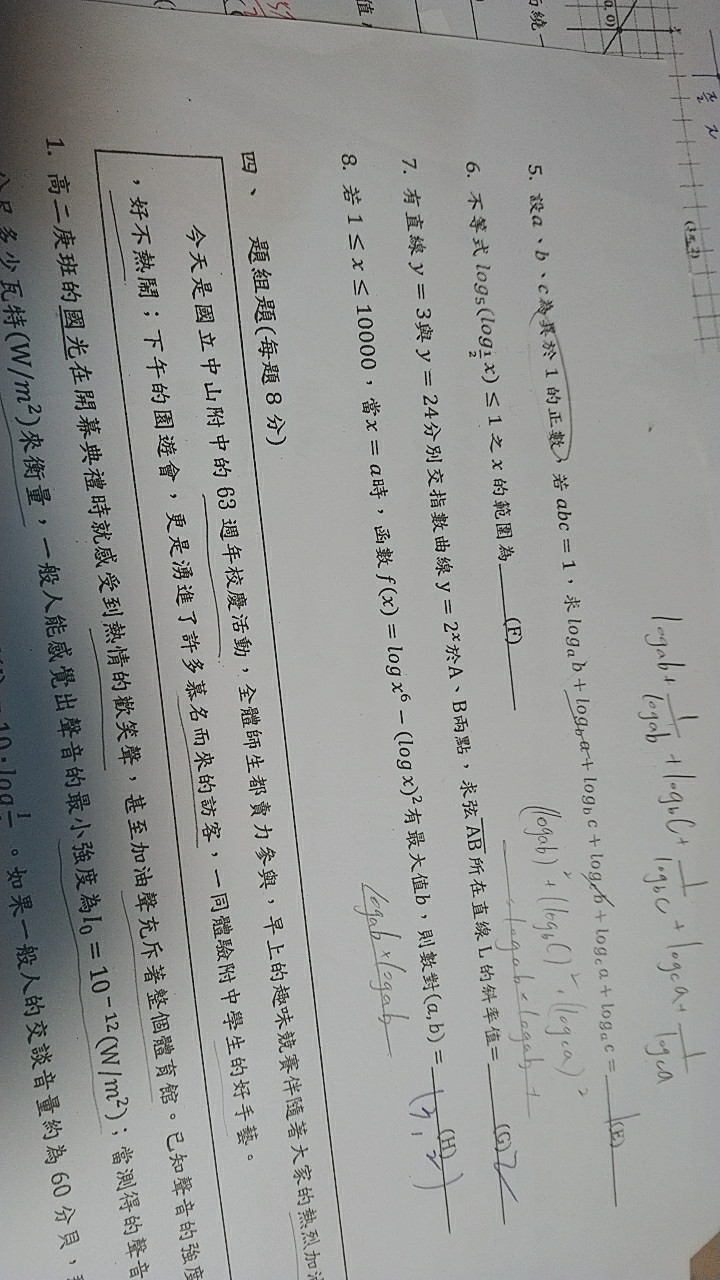 (0, 0)
值,
logab + 1/logab + logbC + 1/logbC + logca + 1/logca
5. 設a、b、c為異於 1 的正數,若 abc = 1,求 logₐb + log_b a + log_b c + log_c b + log_c a + logₐc = (E)
(logab)² + (logbC)² + (logca)²
6. 不等式 log₅(log_{1/2} x) ≤ 1 之 x 的範圍為 (F)
7. 有直線 y = 3與 y = 24分別交指數曲線 y = 2ˣ於A、B兩點,求弦AB所在直線 L 的斜率值= (G)
8. 若 1 ≤ x ≤ 10000,當x = a時,函數 f(x) = log x⁶ − (log x)² 有最大值b,則數對(a, b) = (H)
logab × logab
四、 題組題(每題 8 分)
今天是國立中山附中的 63 週年校慶活動,全體師生都賣力參與,早上的趣味競賽伴隨著大家的熱烈加油
,好不熱鬧;下午的園遊會,更是湧進了許多慕名而來的訪客,一同體驗附中學生的好手藝。
1. 高二庚班的國光在開幕典禮時就感受到熱情的歡笑聲,甚至加油聲充斥著整個體育館。已知聲音的強度
多少瓦特(W/m²)來衡量,一般人能感覺出聲音的最小強度為I₀ = 10⁻¹²(W/m²);當測得的聲音
= 10·log I。如果一般人的交談音量約為 60 分貝,